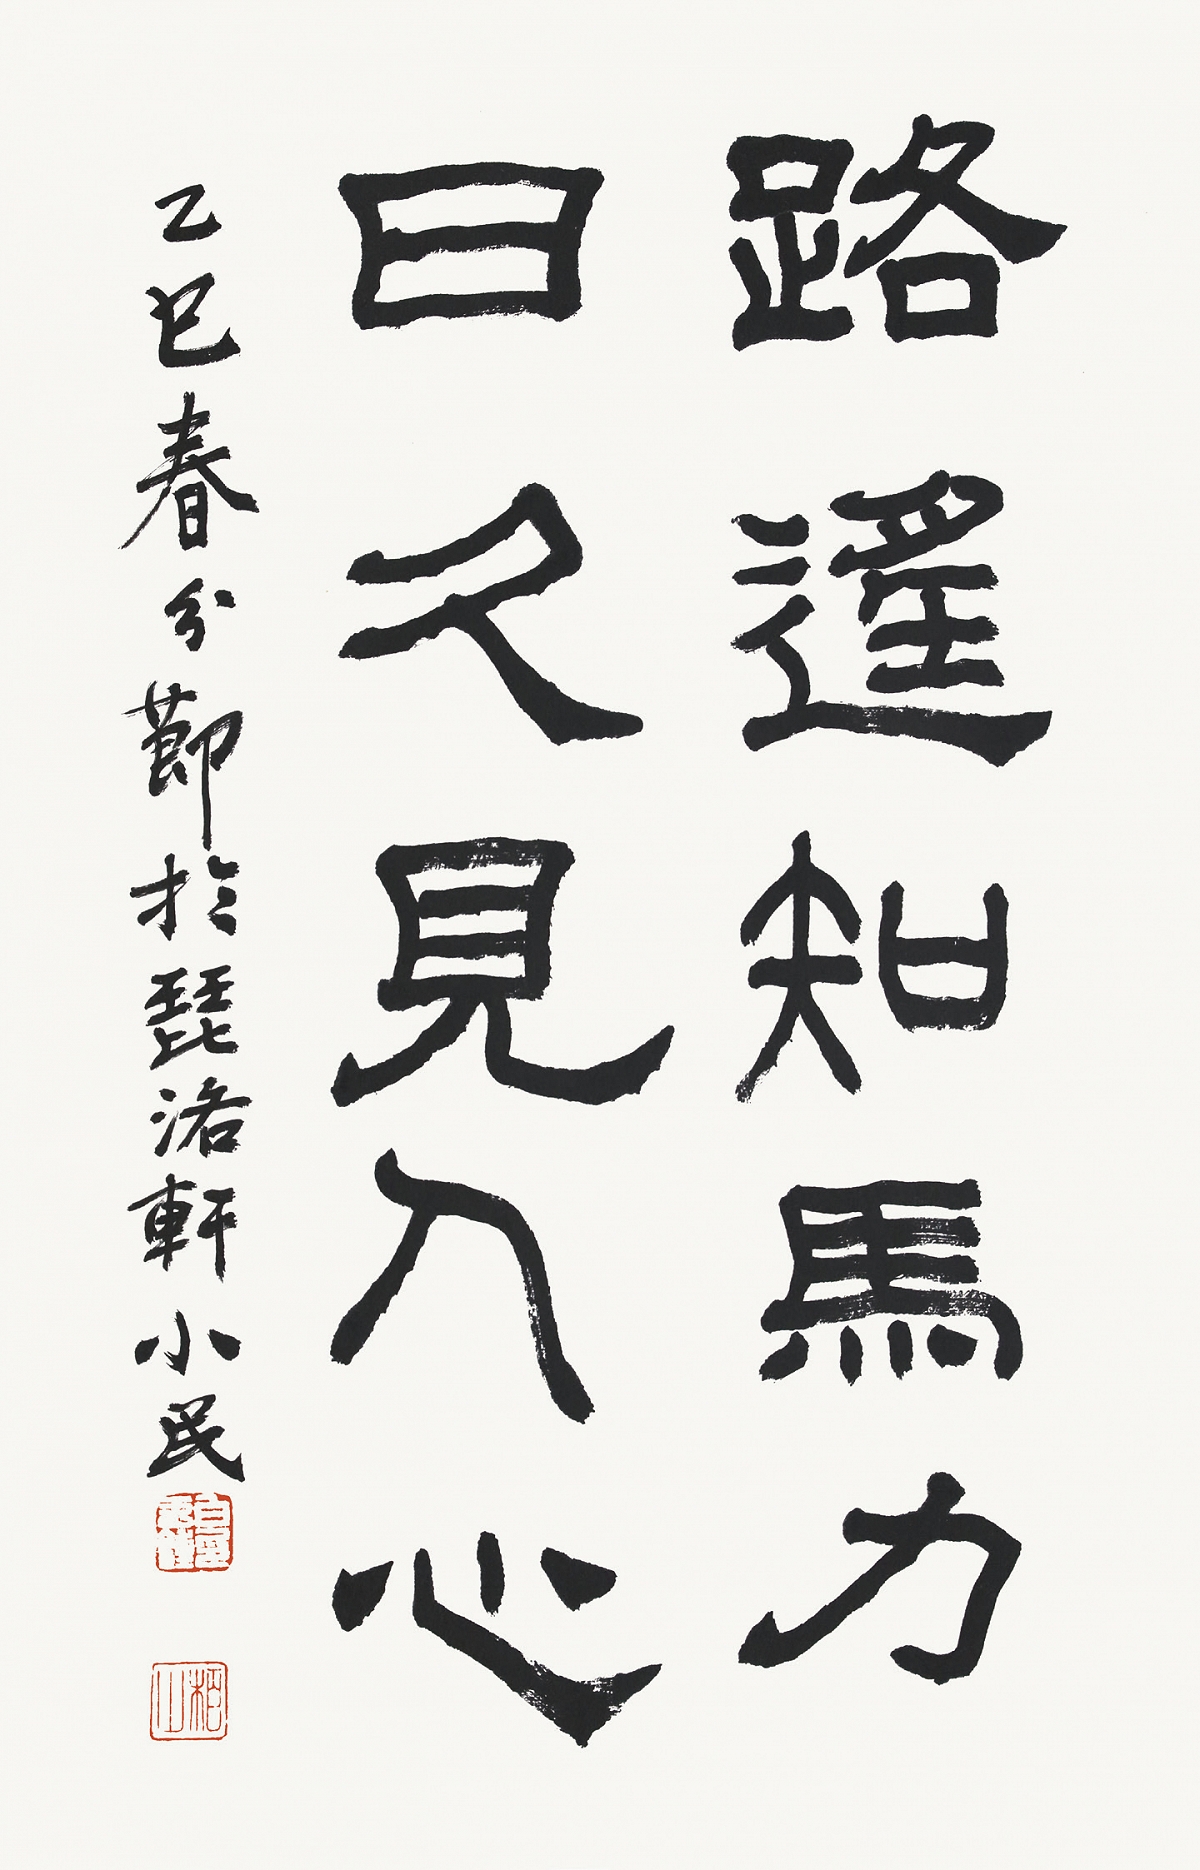 路遙知馬力
日久見人心
乙巳春分節於琵洛軒小民
柏山